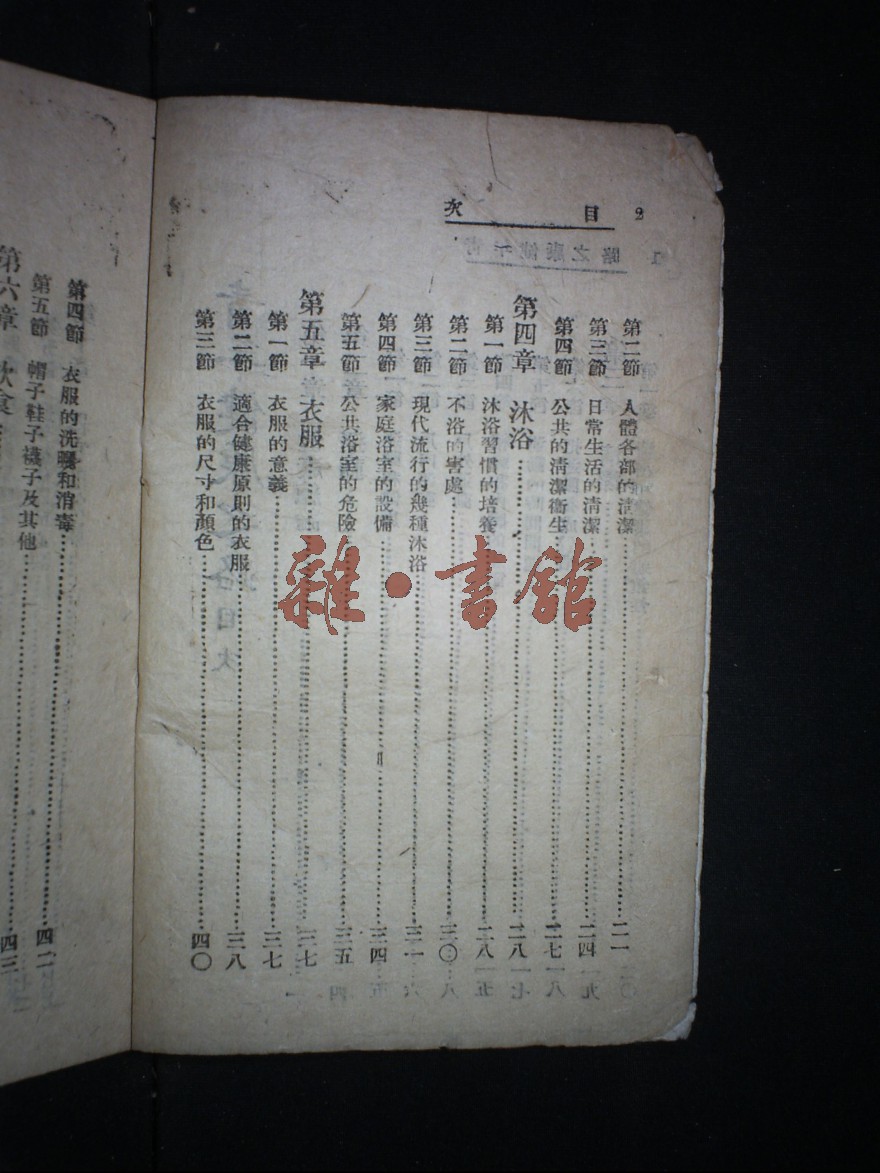 2 目次
第二節 人體各部的清潔……二一
第三節 日常生活的清潔……二四
第四節 公共的清潔衞生……二七
第四章 沐浴……二八
第一節 沐浴習慣的培養……二八
第二節 不浴的害處……三〇
第三節 現代流行的幾種沐浴……三一
第四節 家庭浴室的設備……三四
第五節 公共浴室的危險……三五
第五章 衣服……三七
第一節 衣服的意義……三七
第二節 適合健康原則的衣服……三八
第三節 衣服的尺寸和顏色……四〇
第四節 衣服的洗曬和消毒……四二
第五節 帽子鞋子襪子及其他……四三
第六章 飲食
雜·書館